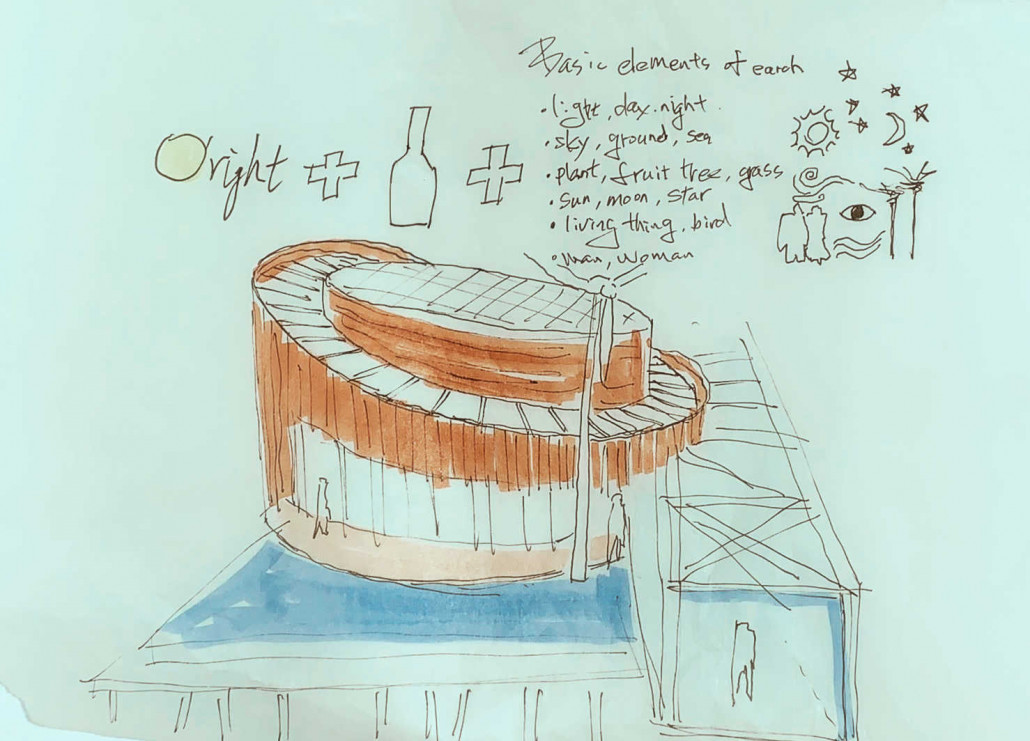 Oright + +
Basic elements of earch
• light, day. night.
• sky, ground, sea
• plant, fruit tree, grass
• sun, moon, star
• living thing, bird
• man, woman